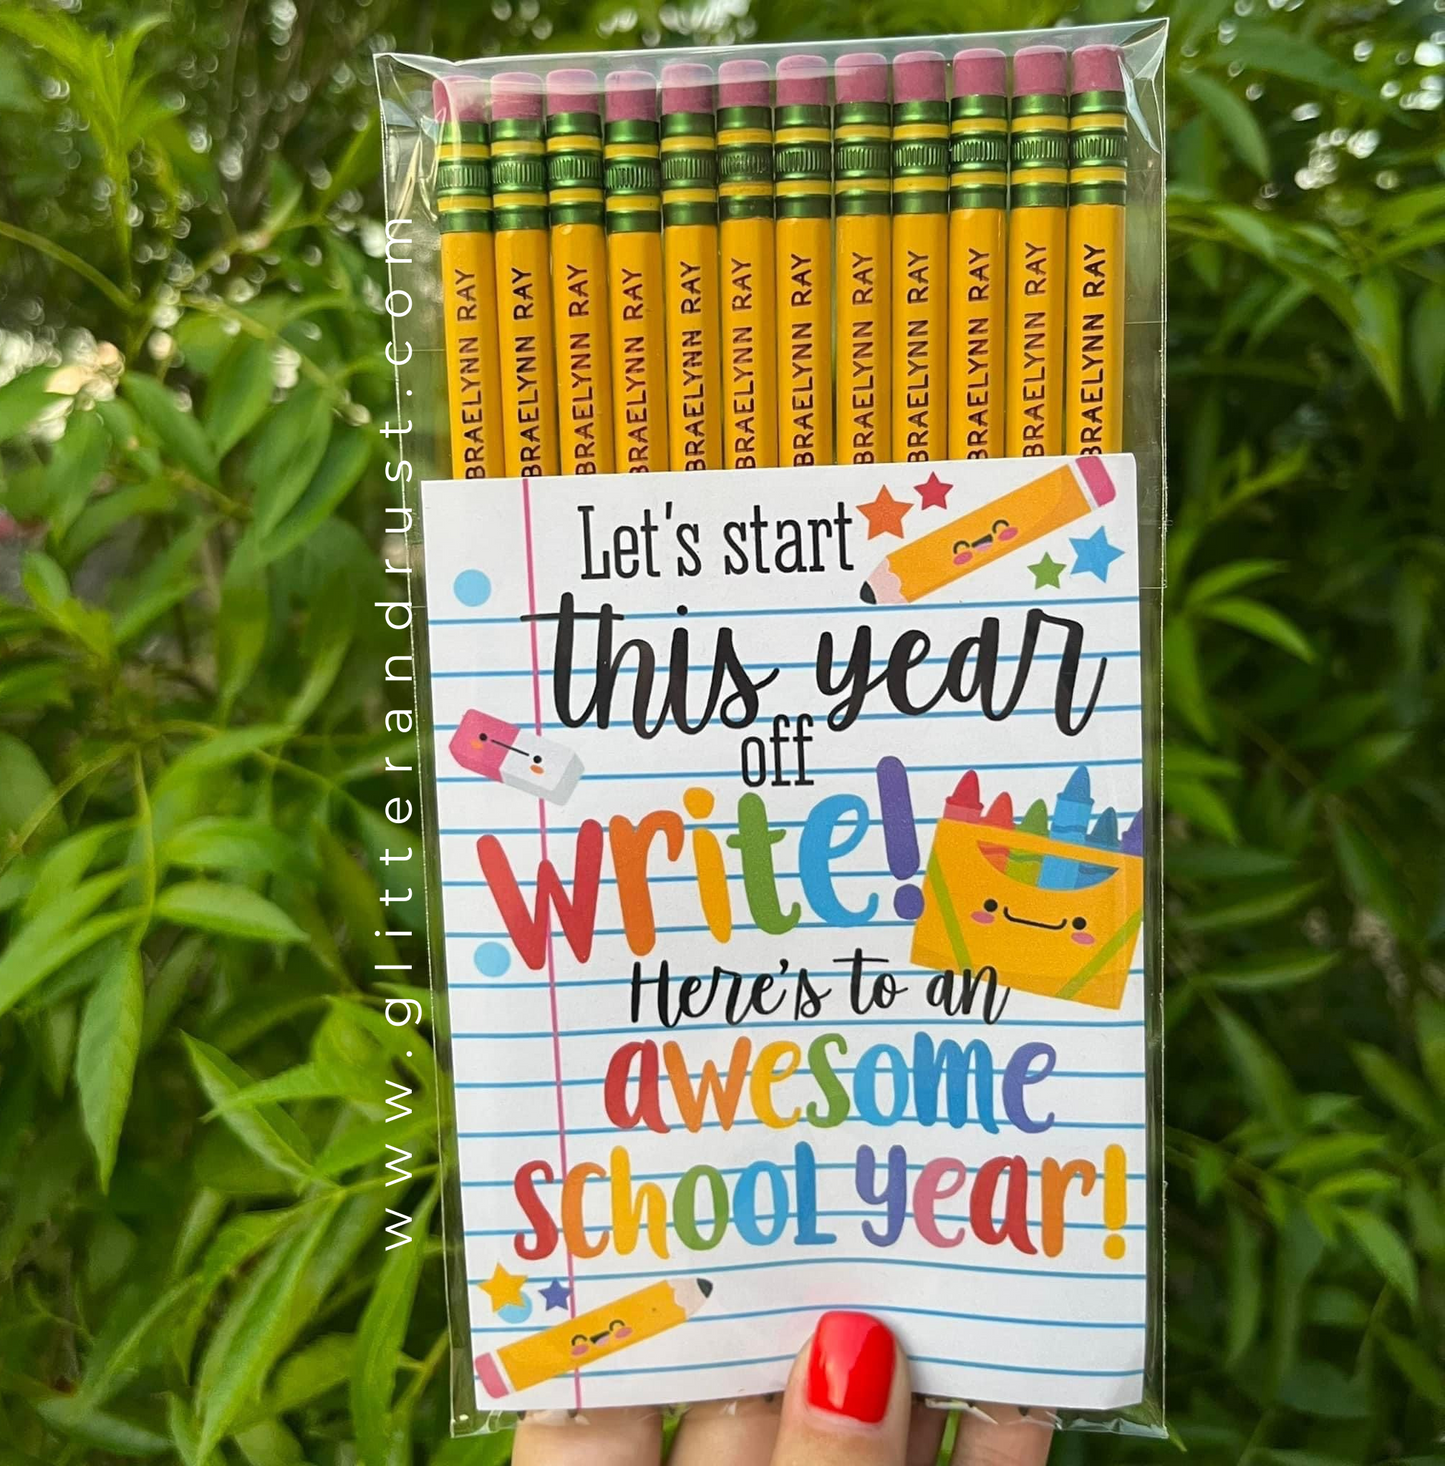 BRAELYNN RAY
BRAELYNN RAY
BRAELYNN RAY
BRAELYNN RAY
BRAELYNN RAY
BRAELYNN RAY
BRAELYNN RAY
BRAELYNN RAY
BRAELYNN RAY
BRAELYNN RAY
BRAELYNN RAY
BRAELYNN RAY
Let's start
this year
off
write!
Here's to an
awesome
school year!
www.glitterandrust.com